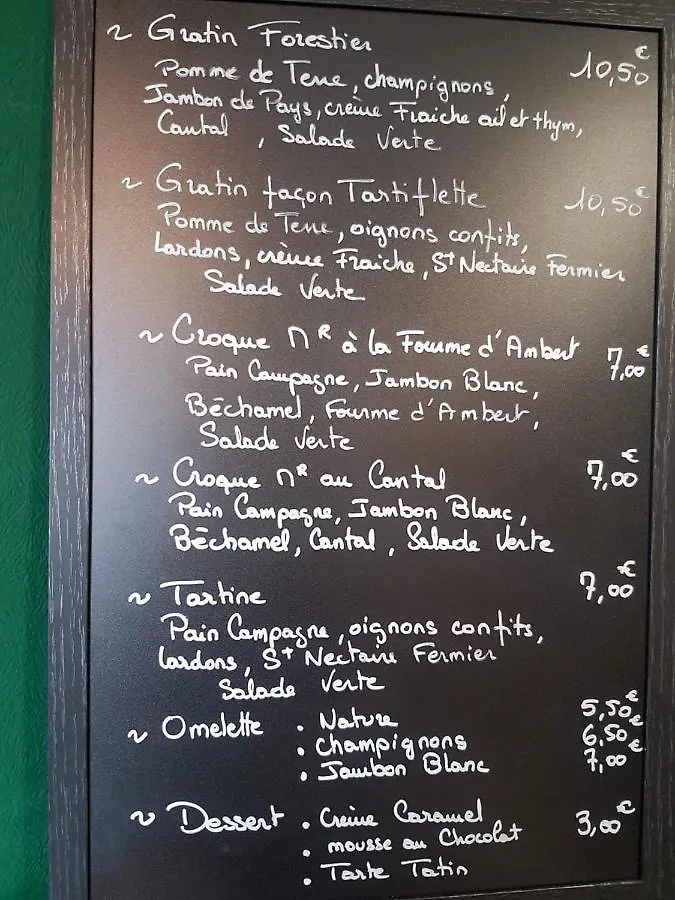 ~ Gratin Forestier 10,50€
Pomme de Terre, champignons,
Jambon de Pays, crème Fraiche ail et thym,
Cantal , Salade Verte
~ Gratin façon Tartiflette 10,50€
Pomme de Terre, oignons confits,
Lardons, crème Fraiche, St Nectaire Fermier
Salade Verte
~ Croque Mr à la Fourme d'Ambert 7,00€
Pain Campagne, Jambon Blanc,
Béchamel, Fourme d'Ambert,
Salade Verte
~ Croque Mr au Cantal 7,00€
Pain Campagne, Jambon Blanc,
Béchamel, Cantal, Salade Verte
~ Tartine 7,00€
Pain Campagne, oignons confits,
Lardons, St Nectaire Fermier
Salade Verte
~ Omelette . Nature 5,50€
. champignons 6,50€
. Jambon Blanc 7,00€
~ Dessert . Crème Caramel 3,00€
. mousse au Chocolat
. Tarte Tatin